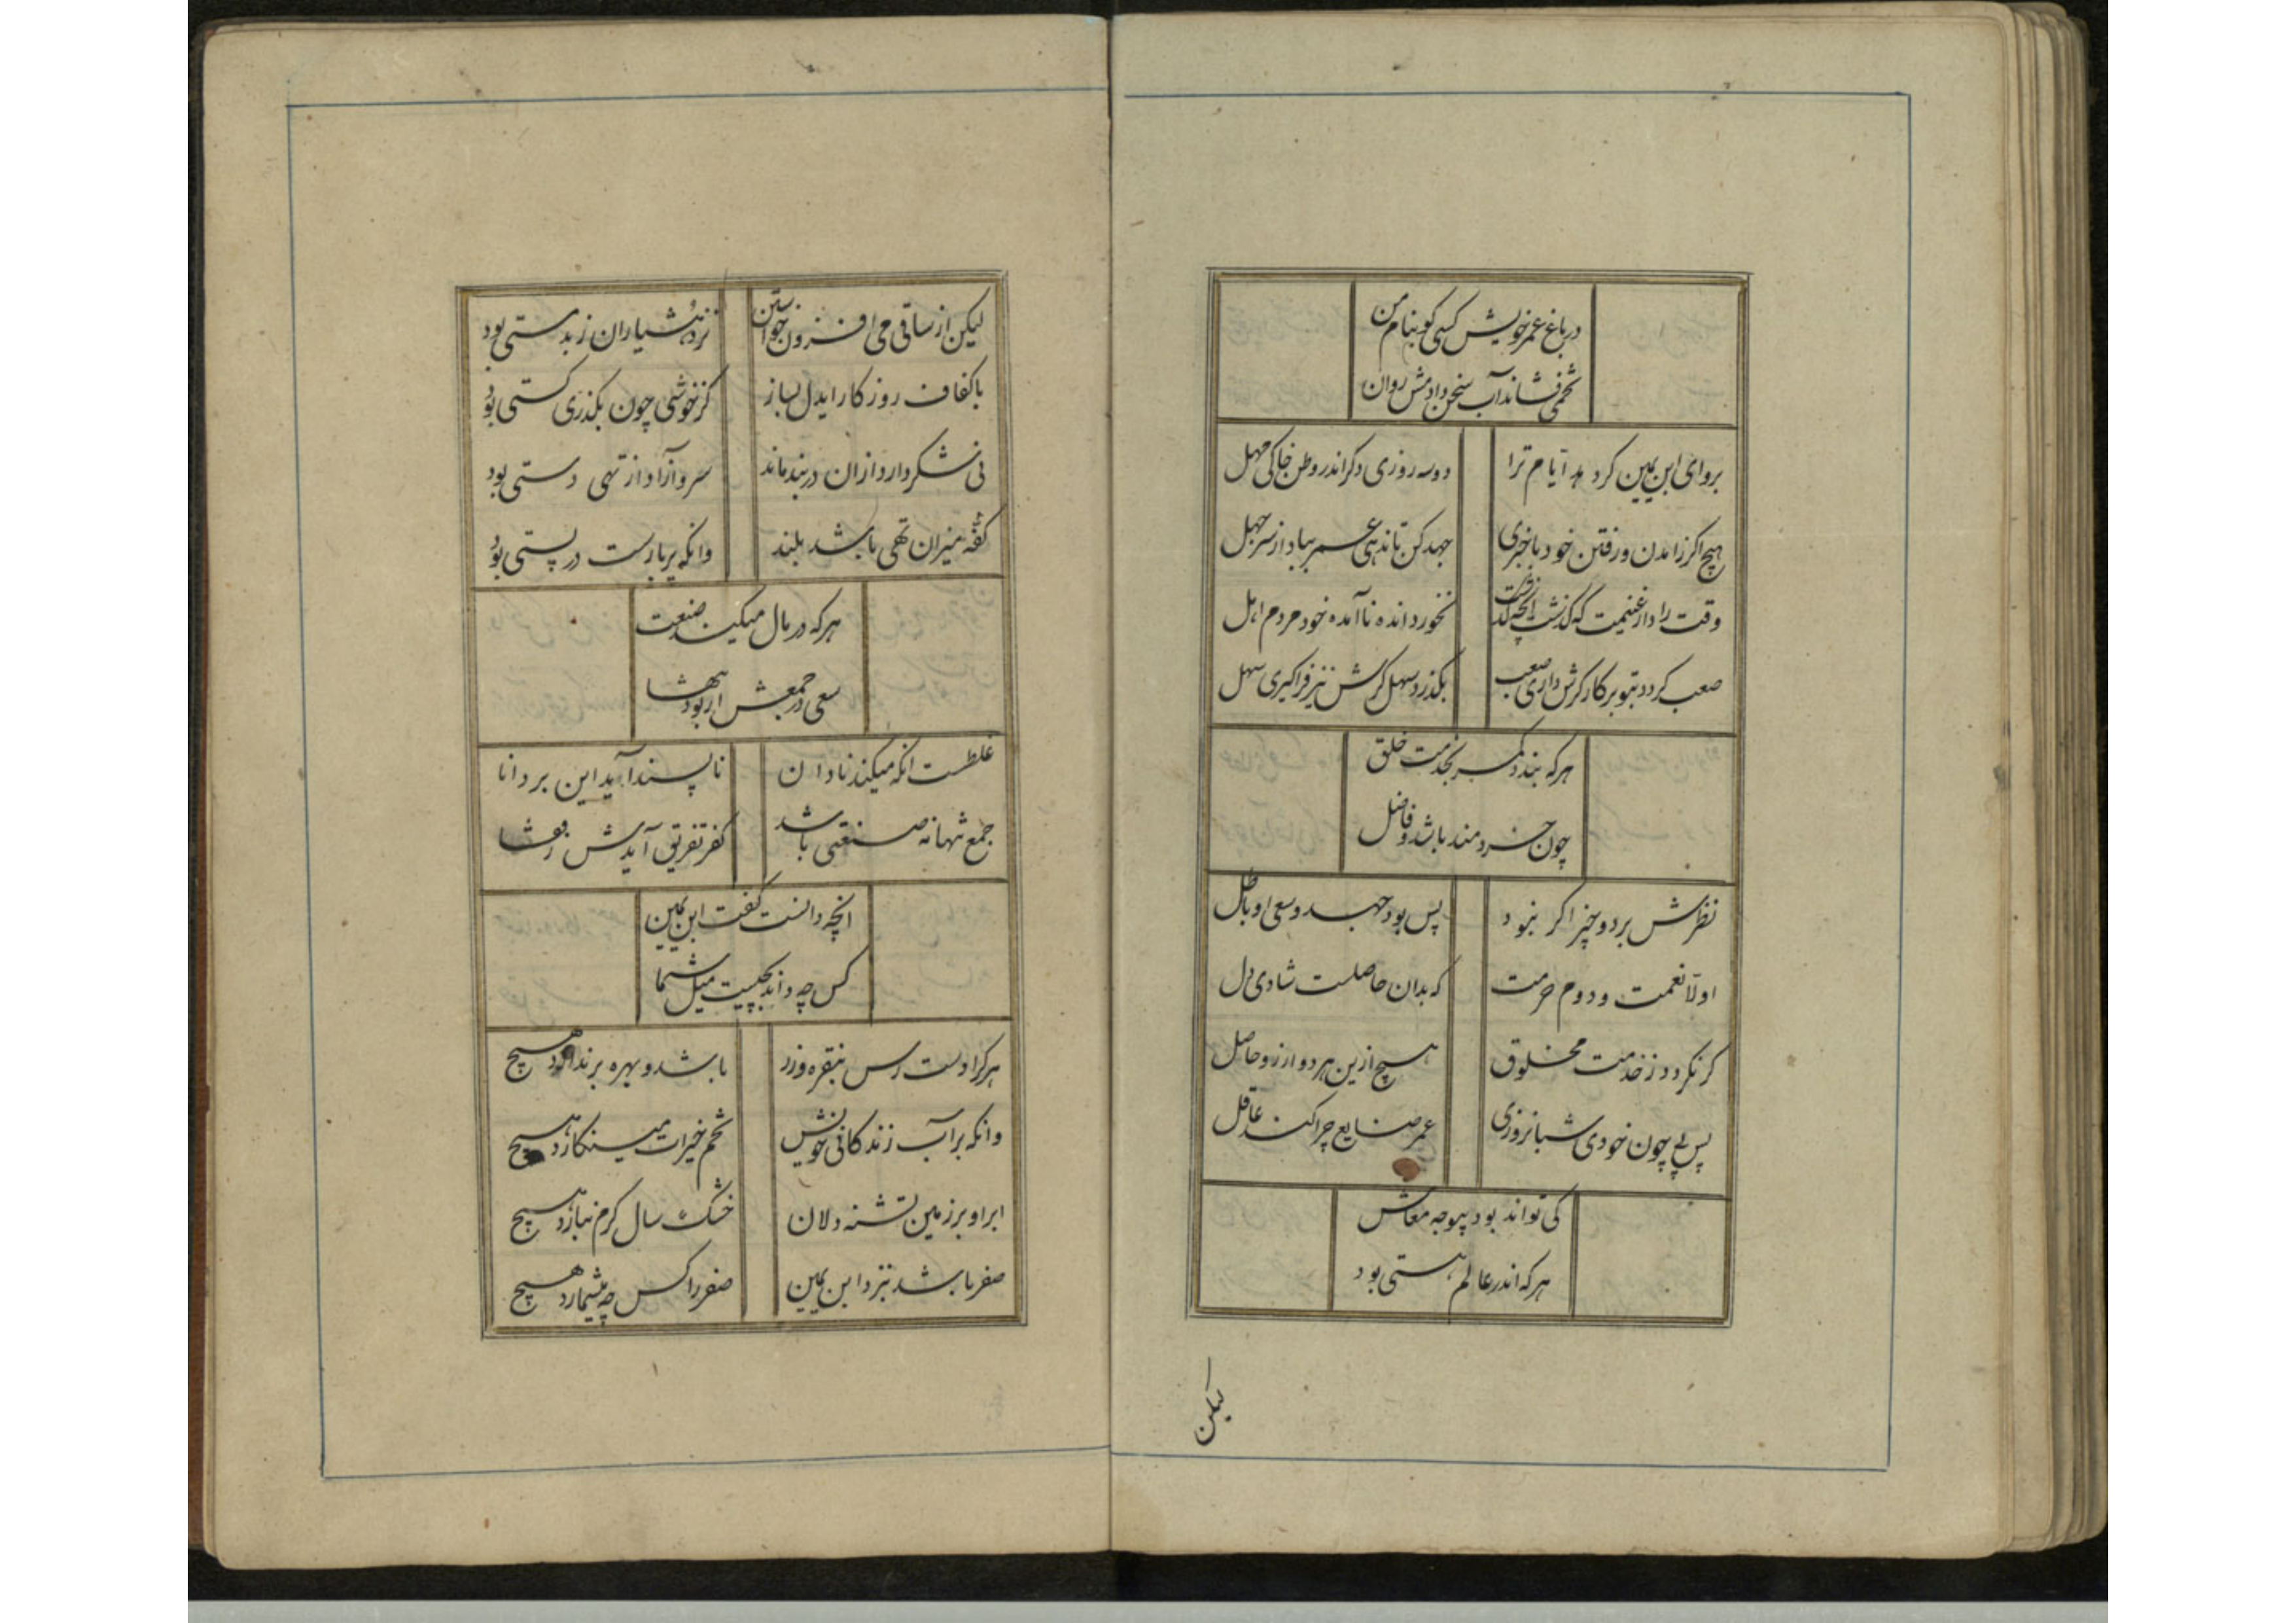 در باغ عمر خویش کسی کو بنام من
تخمی فشاند آب سخن دادمش روان
بروای ابن یمین کرد مه آیام ترا دوسه روزی دکر اندر وطن خاکی مهل
هیچ اکر زامدن ورفتن خود باخبری جهد کن تا ندهی عمر بباد از سر جهل
وقت را دار غنیمت که کذشت انچه کذشت نخورد انده ناآمده خود مردم اهل
صعب کردد بتو بر کار کرش داری صعب بکذرد سهل کرش نیز فراکیری سهل
هرکه بندد کمر بخدمت خلق
چون خردمند باشد و فاضل
نظرش بر دو چیز اکر نبود پس بود جهد و سعی او باطل
اولا نعمت و دوم حرمت که بدان حاصلست شادی دل
کر نکردد زخدمت مخلوق هیچ ازین هر دو ارزو حاصل
پس پی چون خودی شبانروزی عمر ضایع چرا کند عاقل
کی تواند بود بیوجه معاش
هرکه اندر عالم هستی بود
لیکن
لیکن از ساقی می افزون خواستن نزد هشیاران ز بدمستی بود
با کفاف روزکار ایدل بساز کز خوشی چون بکذری کستی بود
نی شکر دارد ازان در بند ماند سرو آزاد از تهی دستی بود
کفه میزان تهی باشد بلند وانکه پربارست در پستی بود
هرکه در مال میکند صنعت
سعی در جمعش ار بود تنها
غلطست انکه میکند نادان ناپسند آید این بر دانا
جمع تنها نه صنعتی باشد کفر تفریق آیدش زقفا
انچه دانست کفت ابن یمین
کس چه داند بچیست میل شما
هرکرا دست رس بنقره وزر باشد و بهره برندارد هیچ
وانکه بر آب زندکانی خویش تخم خیرات می نکارد هیچ
ابر او بر زمین تشنه دلان خشک سال کرم نبارد هیچ
صفر باشد بنزد ابن یمین صفر را کس چه میشمارد هیچ